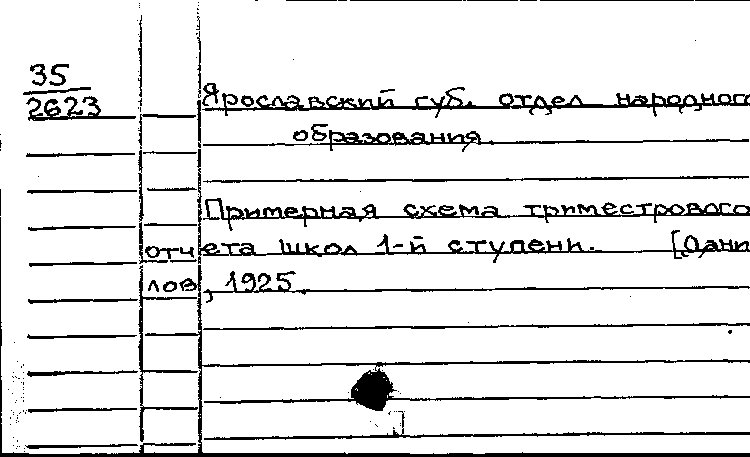 35
2623
Ярославский губ. отдел народного
образования.
Примерная схема триместрового
отчета школ 1-й ступени. [Дани
лов, 1925.